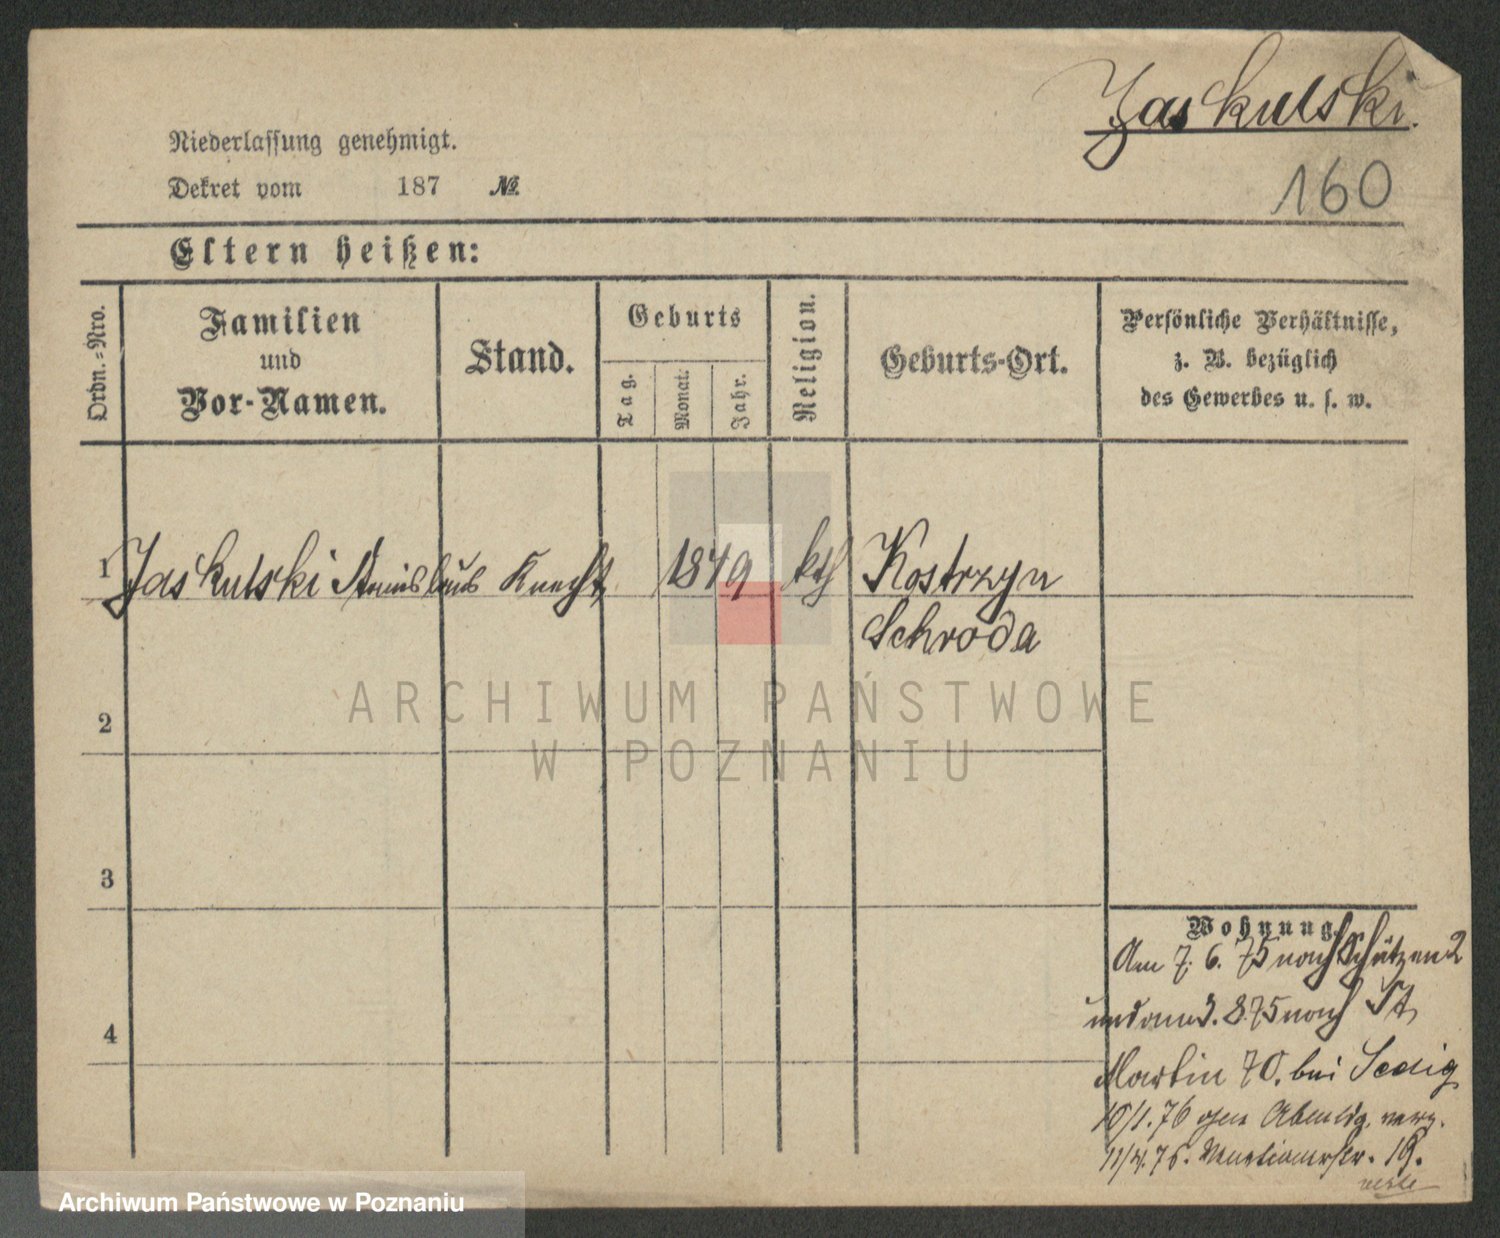 Jaskulski.
160
Niederlassung genehmigt.
Dekret vom 187 №
Eltern heißen:
Ordn.-Nro.
Familien
und
Vor-Namen.
Stand.
Geburts
Tag.
Monat.
Jahr.
Religion.
Geburts-Ort.
Persönliche Verhältnisse,
z. B. bezüglich
des Gewerbes u. s. w.
1 Jaskulski Stanislaus Knecht 1849 kth Kostrzyn
Schroda
2
3
4
Wohnung.
Am 7. 6. 75 nach Schützen 2
und am 3. 8 75 nach St
Martin 70. bei
10/1. 76 ohne Abmldg. verz.
11/4. 76. Venetianerstr. 19.
ARCHIWUM PAŃSTWOWE
W POZNANIU
Archiwum Państwowe w Poznaniu